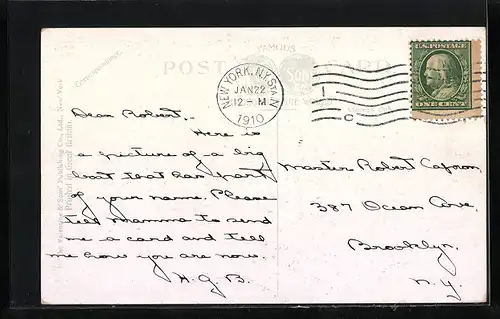 FAMOUS
POST CARD
Correspondence.
NEW YORK, N.Y. STA. N
JAN 22
12-M
1910
U.S. POSTAGE
ONE CENT
Dear Robert,
Here is
a picture of a big
boat that has part
of your name. Please
tell mamma to send
me a card and tell
me how you are now.
H.G.B.
Master Robert Capron,
387 Ocean Ave.
Brooklyn.
N.Y.
The Valentine & Sons' Publishing Co., Ltd., New York
Printed in Great Britain.